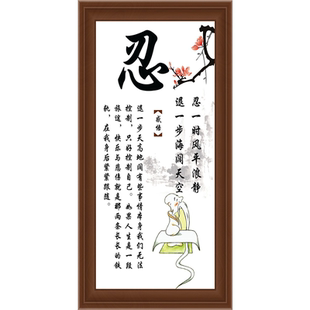 忍
忍一时风平浪静
退一步海阔天空
【感悟】
退一步天高地阔有些事情本身我们无法
控制,只好控制自己。如果人生是一段
旅途,快乐与悲伤就是那两条长长的铁
轨,在我身后紧紧跟随。